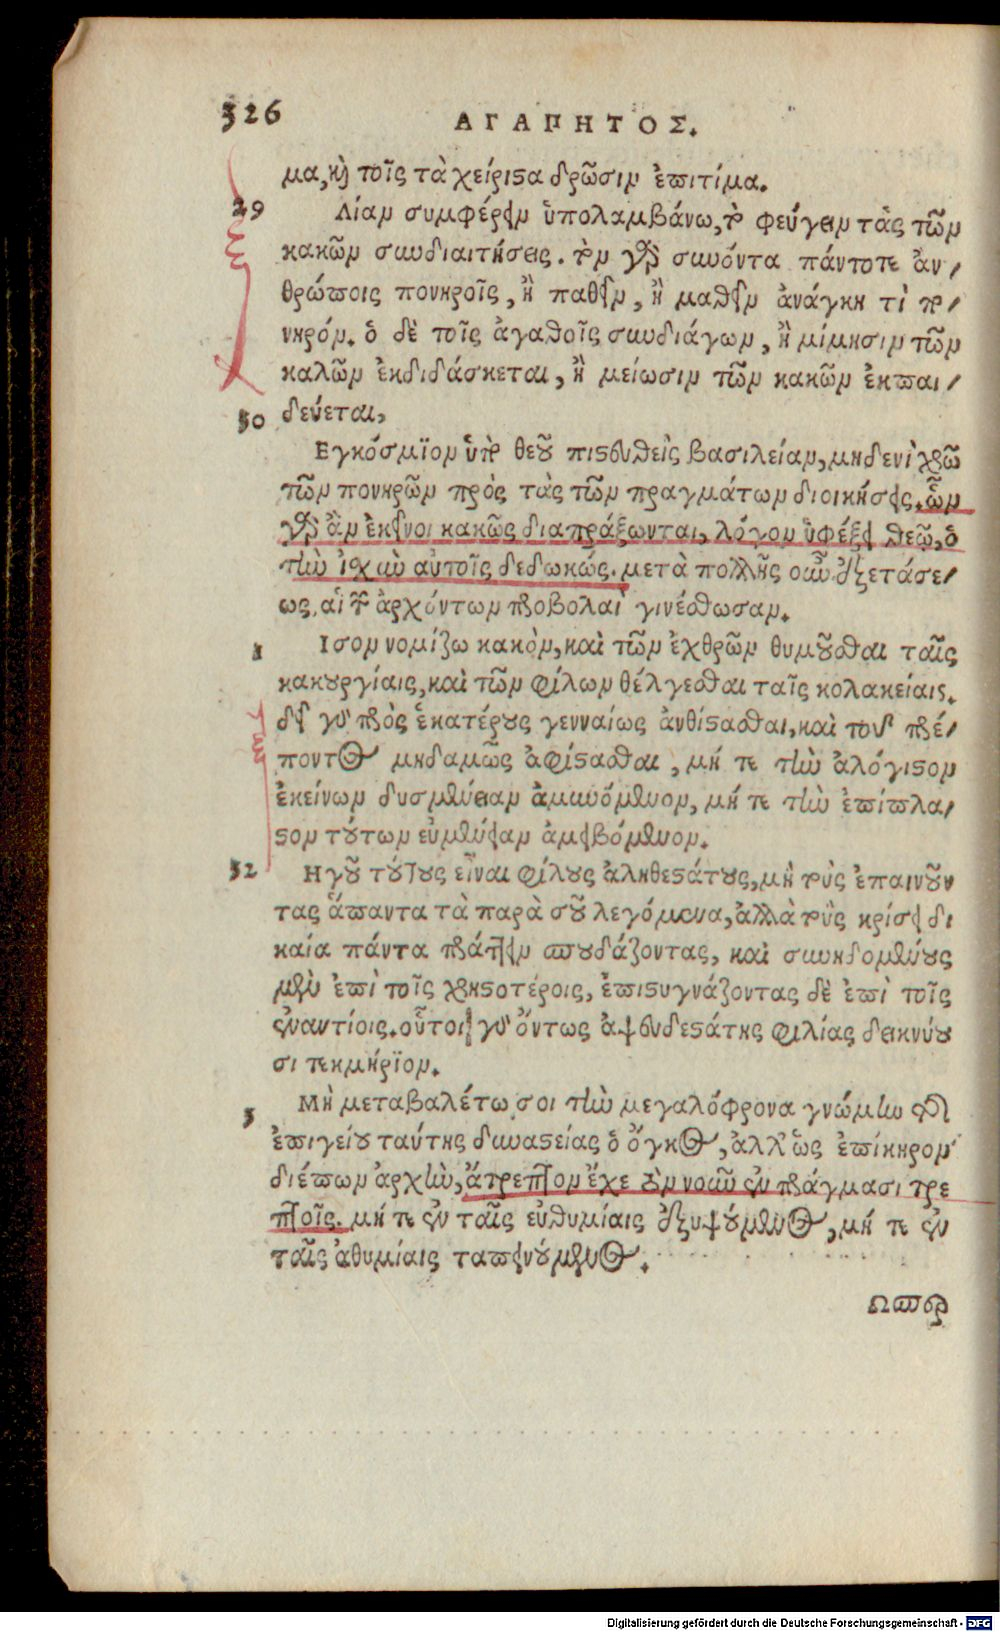 326
ΑΓΑΠΗΤΟΣ.
μα, καὶ τοῖς τὰ χείριστα δρῶσιν ἐπιτίμα.
29
Λίαν συμφέρειν ὑπολαμβάνω, τὸ φεύγειν τὰς τῶν
κακῶν συνδιαιτήσεις. τὸν γὰρ συνόντα πάντοτε ἀν-
θρώποις πονηροῖς, ἢ παθεῖν, ἢ μαθεῖν ἀνάγκη τὶ πο-
νηρόν. ὁ δὲ τοῖς ἀγαθοῖς συνδιάγων, ἢ μίμησιν τῶν
καλῶν ἐκδιδάσκεται, ἢ μείωσιν τῶν κακῶν ἐκπαι-
30
δεύεται,
Εγκόσμϊον ὑπὸ θεοῦ πιστευθεὶς βασιλείαν, μηδενὶ χρῶ
τῶν πονηρῶν πρὸς τὰς τῶν πραγμάτων διοικήσεις. ὧν
γὰρ ἂν ἐκεῖνοι κακῶς διαπράξωνται, λόγον ὑφέξει θεῷ, ὁ
τὴν ἰσχὺν αὐτοῖς δεδωκώς. μετὰ πολλῆς οὖν ἐξετάσε-
ως, αἱ τῶν ἀρχόντων προβολαὶ γινέσθωσαν.
1
Ισον νομίζω κακὸν, καὶ τῶν ἐχθρῶν θυμοῦσθαι ταῖς
κακουργίαις, καὶ τῶν φίλων θέλγεσθαι ταῖς κολακείαις.
δεῖ γὰρ πρὸς ἑκατέρους γενναίως ἀνθίστασθαι, καὶ τοῦ πρέ-
ποντος μηδαμῶς ἀφίστασθαι, μή τε τὴν ἀλόγιστον
ἐκείνων δυσμένειαν ἀμυνόμενον, μή τε τὴν ἐπίπλα-
στον τούτων εὐμένειαν ἀμειβόμενον.
32
Ηγοῦ τούτους εἶναι φίλους ἀληθεστάτους, μὴ τοὺς ἐπαινοῦν
τας ἅπαντα τὰ παρὰ σοῦ λεγόμενα, ἀλλὰ τοὺς κρίσει δι
καία πάντα πράττειν σπουδάζοντας, καὶ συνηδομένους
μὲν ἐπὶ τοῖς χρηστοτέροις, ἐπιστυγνάζοντας δὲ ἐπὶ τοῖς
ἐναντίοις. οὗτοι γὰρ ὄντως ἀψευδεστάτης φιλίας δεικνύου
σι τεκμήρϊον.
3
Μὴ μεταβαλέτω σοι τὴν μεγαλόφρονα γνώμην τῆς
ἐπιγείου ταύτης δυναστείας ὁ ὄγκος, ἀλλ' ὡς ἐπίκηρον
διέπων ἀρχὴν, ἄτρεπτον ἔχε τὸν νοῦν ἐν πράγμασι τρε
πτοῖς. μή τε ἐν ταῖς εὐθυμίαις ἐξυψούμενος, μή τε ἐν
ταῖς ἀθυμίαις ταπεινούμενος.
Ωσπερ
Digitalisierung gefördert durch die Deutsche Forschungsgemeinschaft - DFG